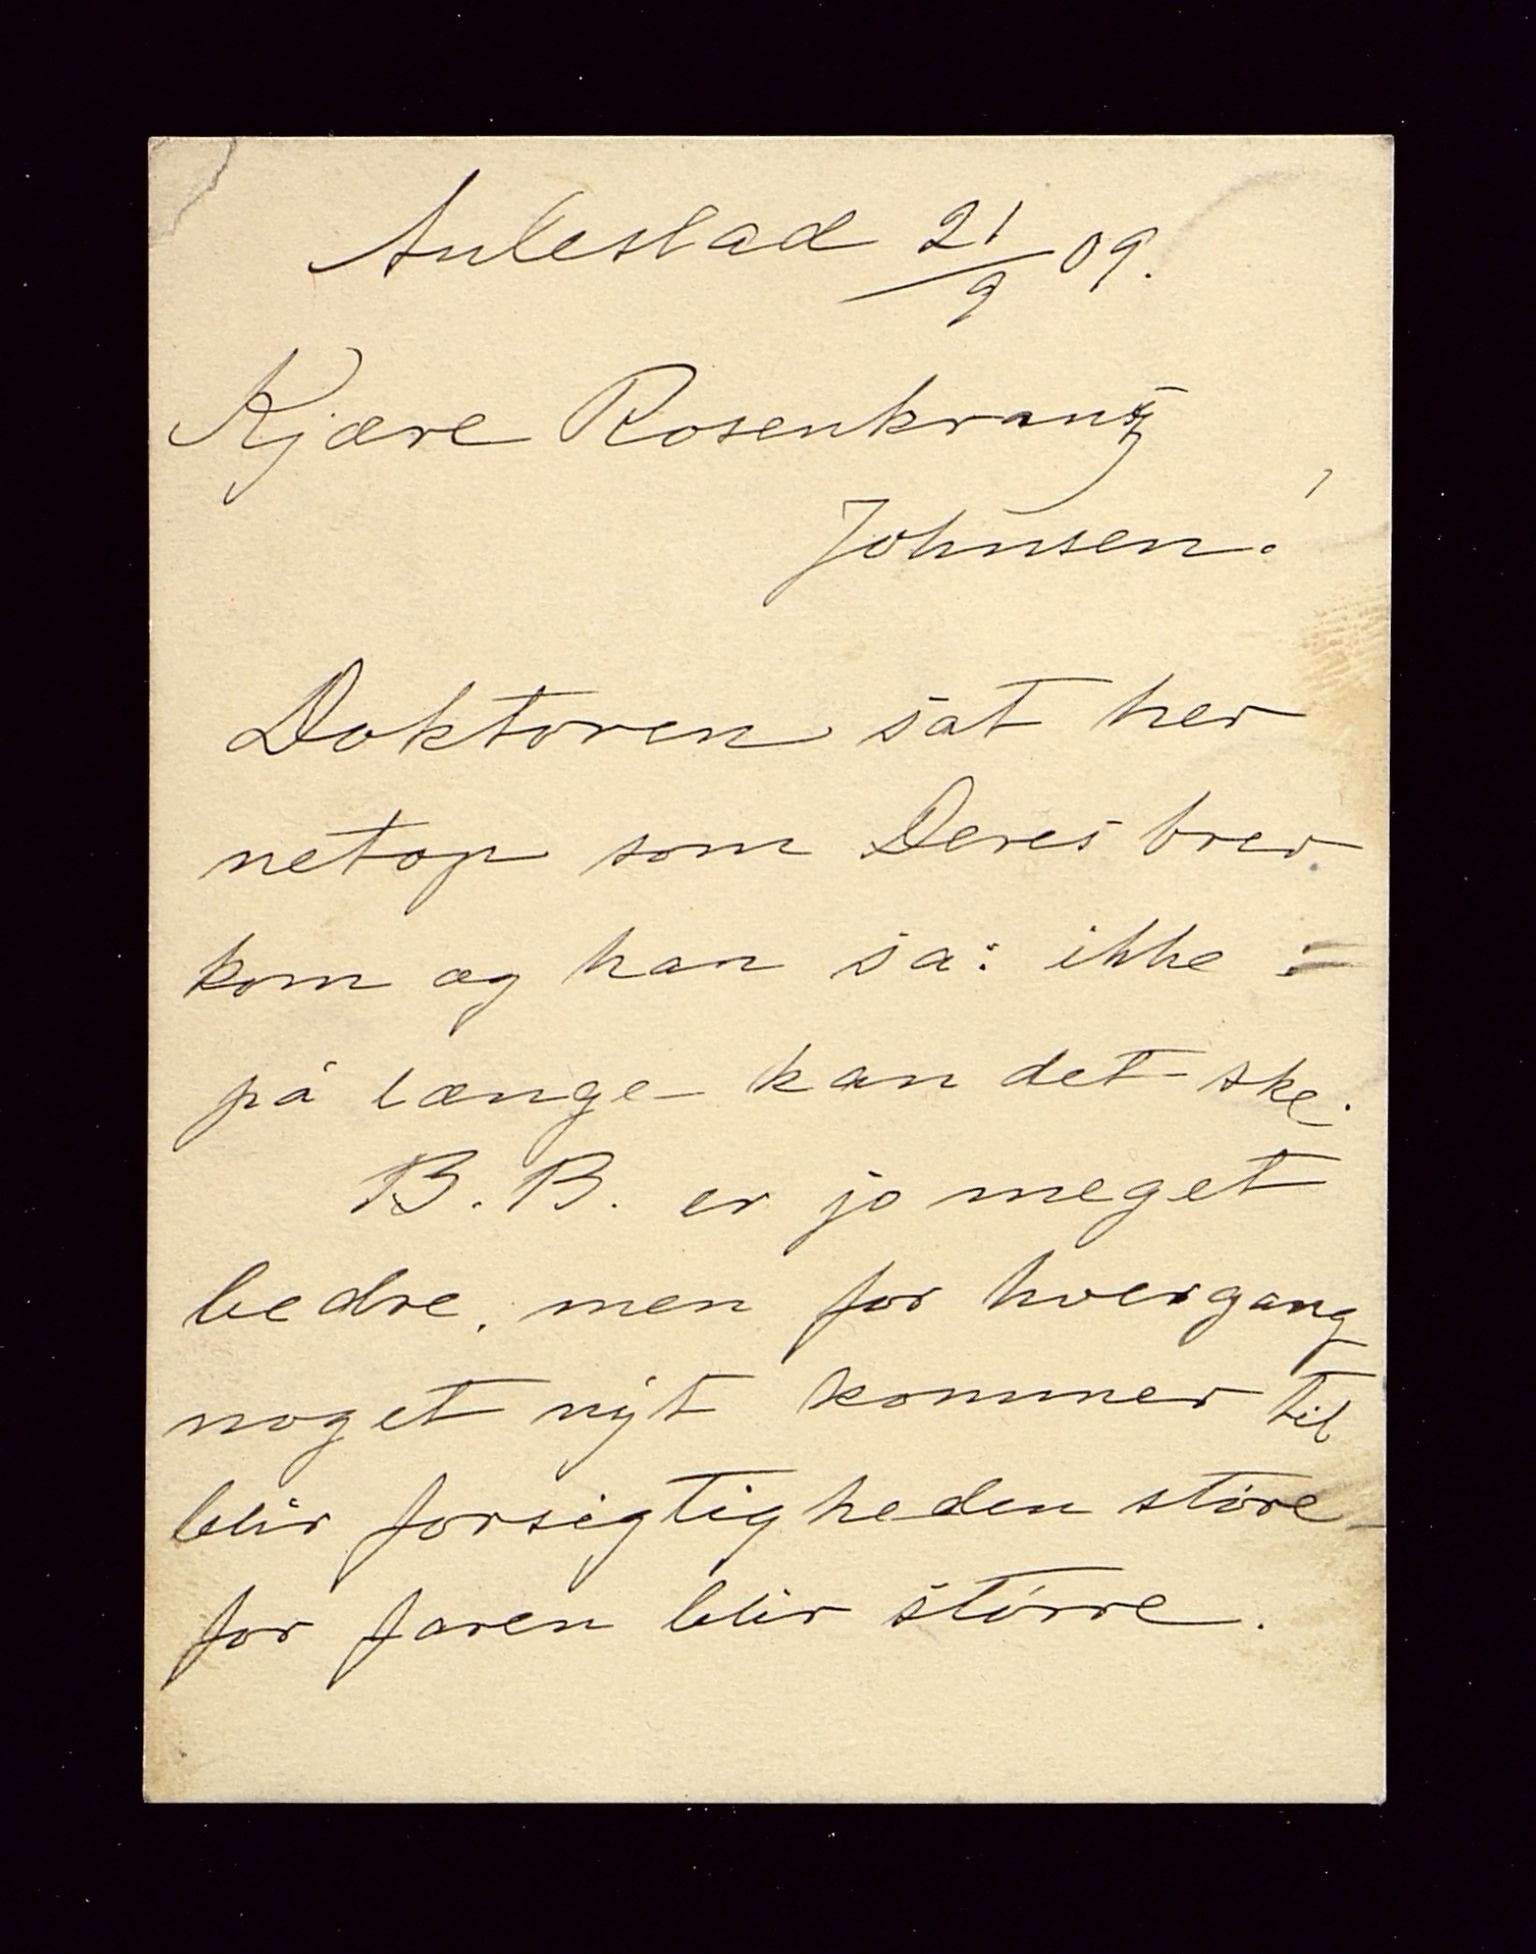 Aulestad 21/9 09.
Kjære Rosenkrantz
Johnsen!
Doktoren sat her
netop som Deres brev
kom og han sa: ikke =
på længe – kan det ske.
B. B. er jo meget
bedre, men for hvergang
noget nyt kommer til
blir forsigtigheden støre –
for faren blir større.